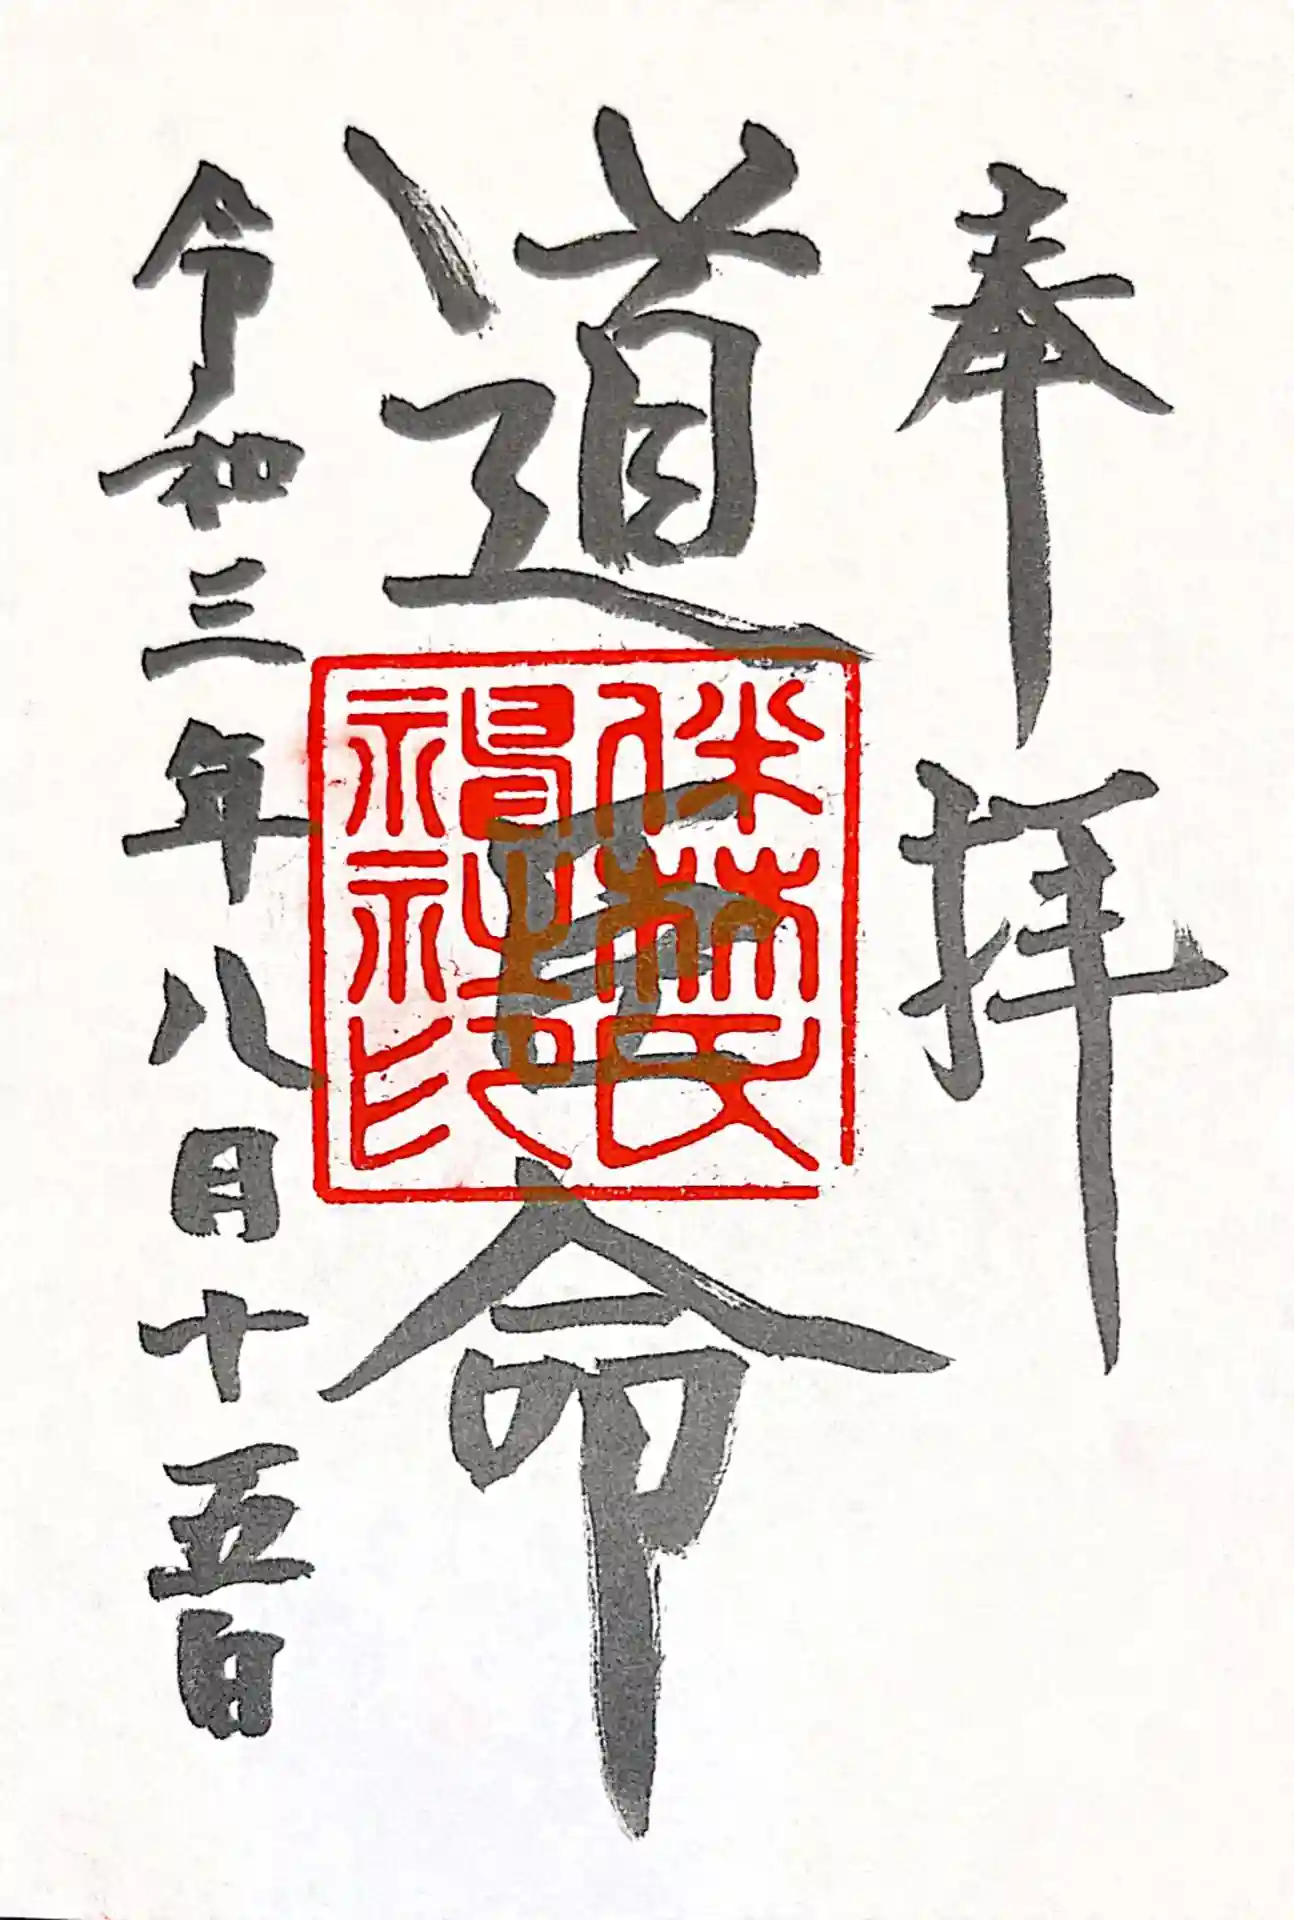 奉拝
道臣命
伴林氏
神社印
令和三年八月十五日